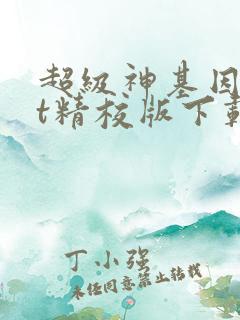 超级神基因
t精校版下载
丁小强
未经同意禁止转载